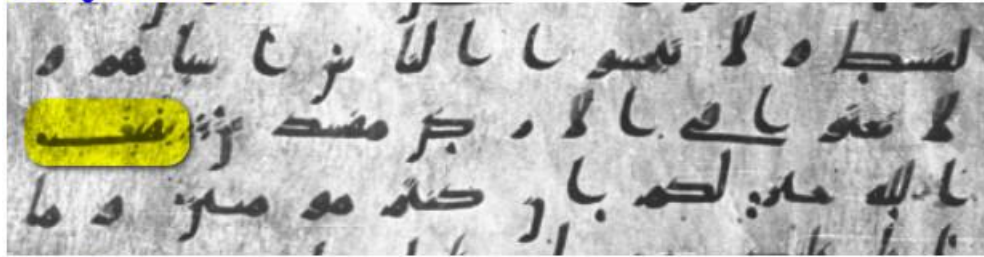 لقسط و لا تبخسو ا ا لنا س ا شيا هم و
لا تعثو ا في ا لا ر ض مفسد ين بقيت
ا لله خير لكم ا ن كنتم مو منين و ما